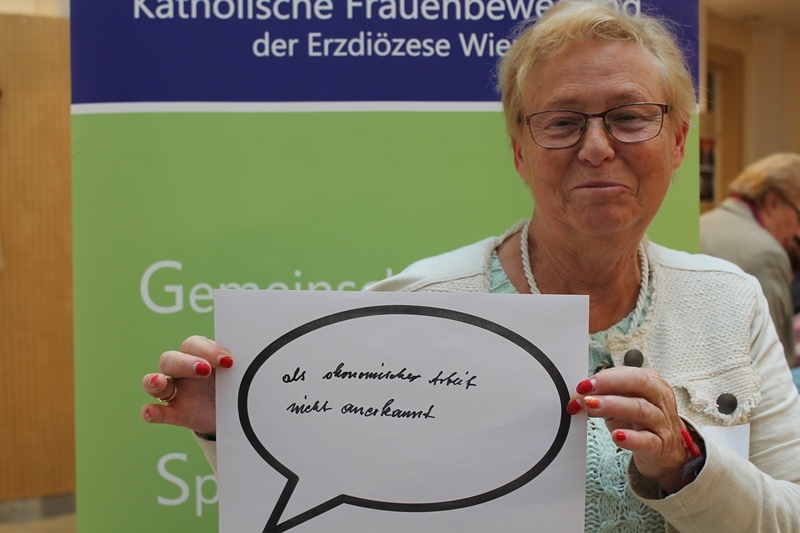 Katholische Frauenbewegung
der Erzdiözese Wien
Gemeinsch
Sp
als ökonomischer Arbeit
nicht anerkannt